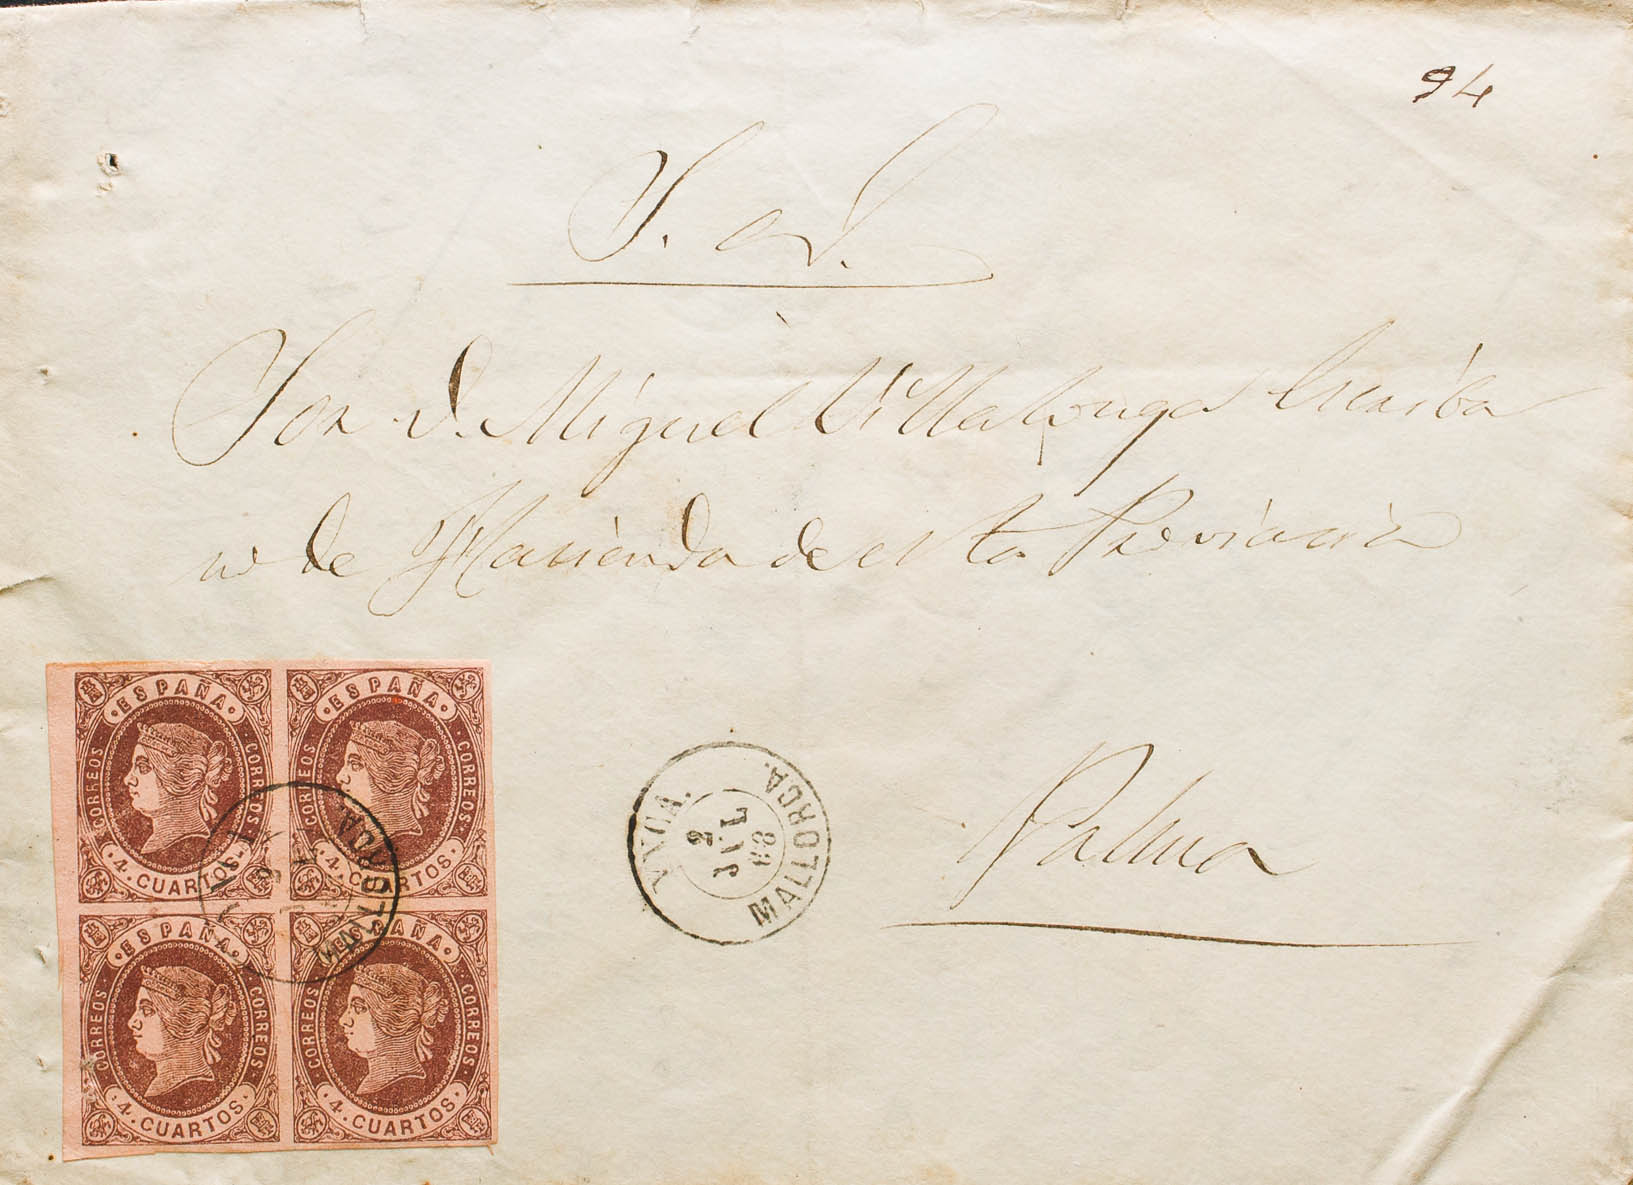 94
S. N.
Sor. D. Miguel Villalonga Escriba
no de Hacienda de esta Provincia
Palma
YNCA.
2
JUL
63
MALLORCA.
ESPAÑA
CORREOS
CORREOS
4. CUARTOS.
ESPAÑA
CORREOS
CORREOS
4. CUARTOS.
ESPAÑA
CORREOS
CORREOS
4. CUARTOS.
ESPAÑA
CORREOS
CORREOS
4. CUARTOS.